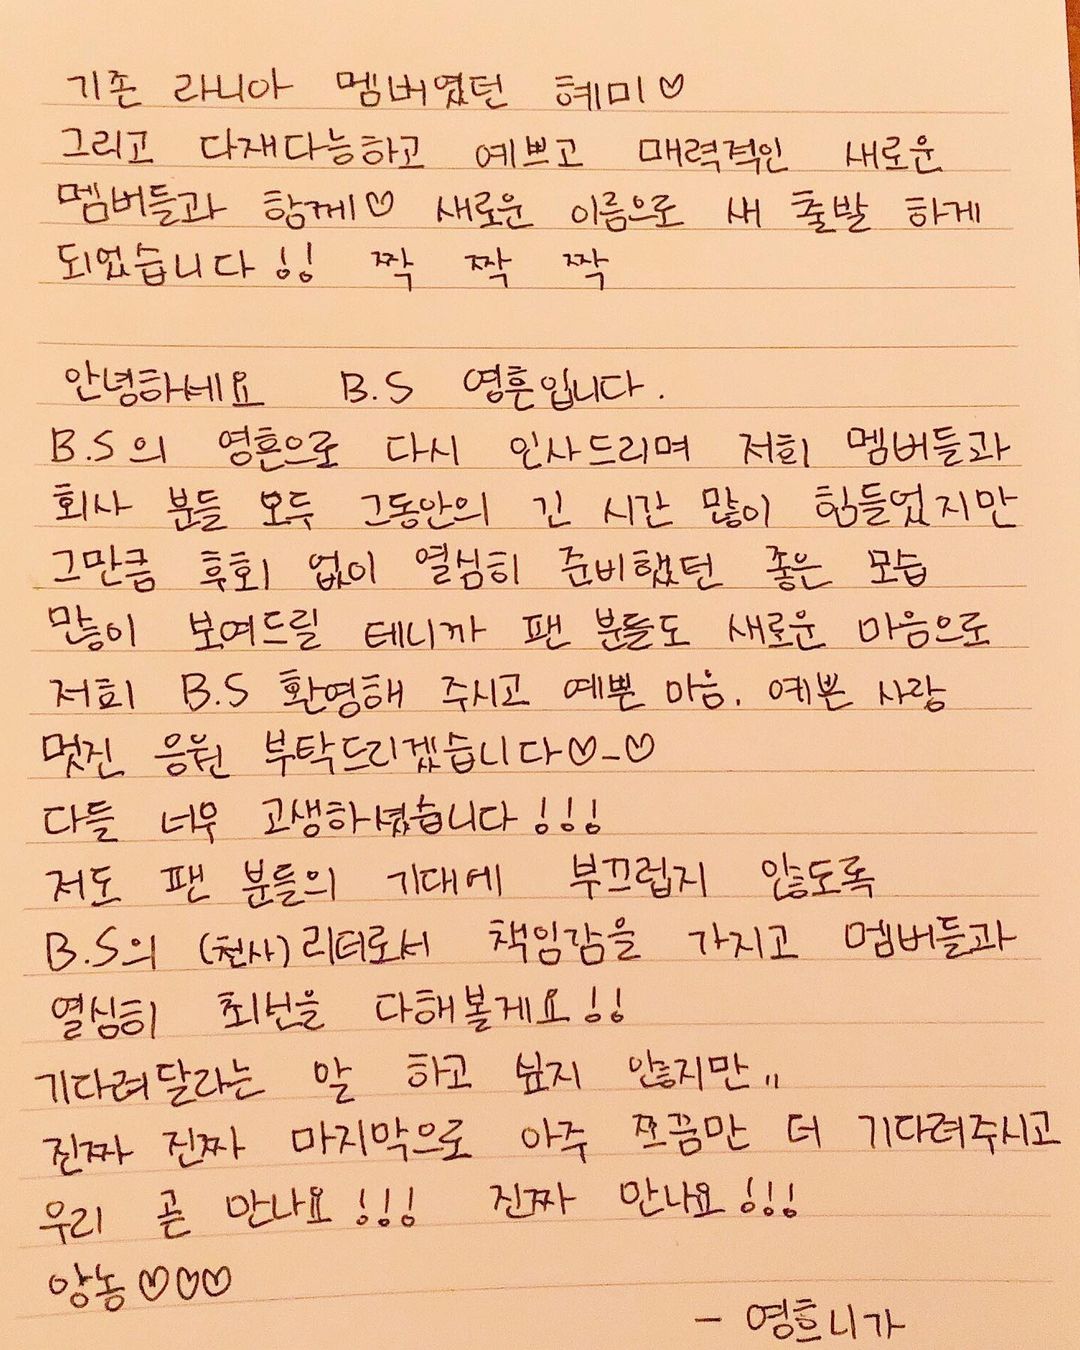 기존 라니아 멤버였던 혜미♡
그리고 다재다능하고 예쁘고 매력적인 새로운
멤버들과 함께♡ 새로운 이름으로 새 출발 하게
되었습니다!! 짝 짝 짝
안녕하세요 B.S 영흔입니다.
B.S의 영흔으로 다시 인사드리며 저희 멤버들과
회사 분들 모두 그동안의 긴 시간 많이 힘들었지만
그만큼 후회 없이 열심히 준비했던 좋은 모습
많이 보여드릴 테니까 팬 분들도 새로운 마음으로
저희 B.S 환영해 주시고 예쁜 마음. 예쁜 사랑
멋진 응원 부탁드리겠습니다♡-♡
다들 너무 고생하셨습니다!!!
저도 팬 분들의 기대에 부끄럽지 않도록
B.S의 (천사) 리더로서 책임감을 가지고 멤버들과
열심히 최선을 다해볼게요!!
기다려달라는 말 하고 싶지 않지만,,
진짜 진짜 마지막으로 아주 쪼끔만 더 기다려주시고
우리 곧 만나요!!! 진짜 만나요!!!
앙농♡♡♡
- 영흐니가